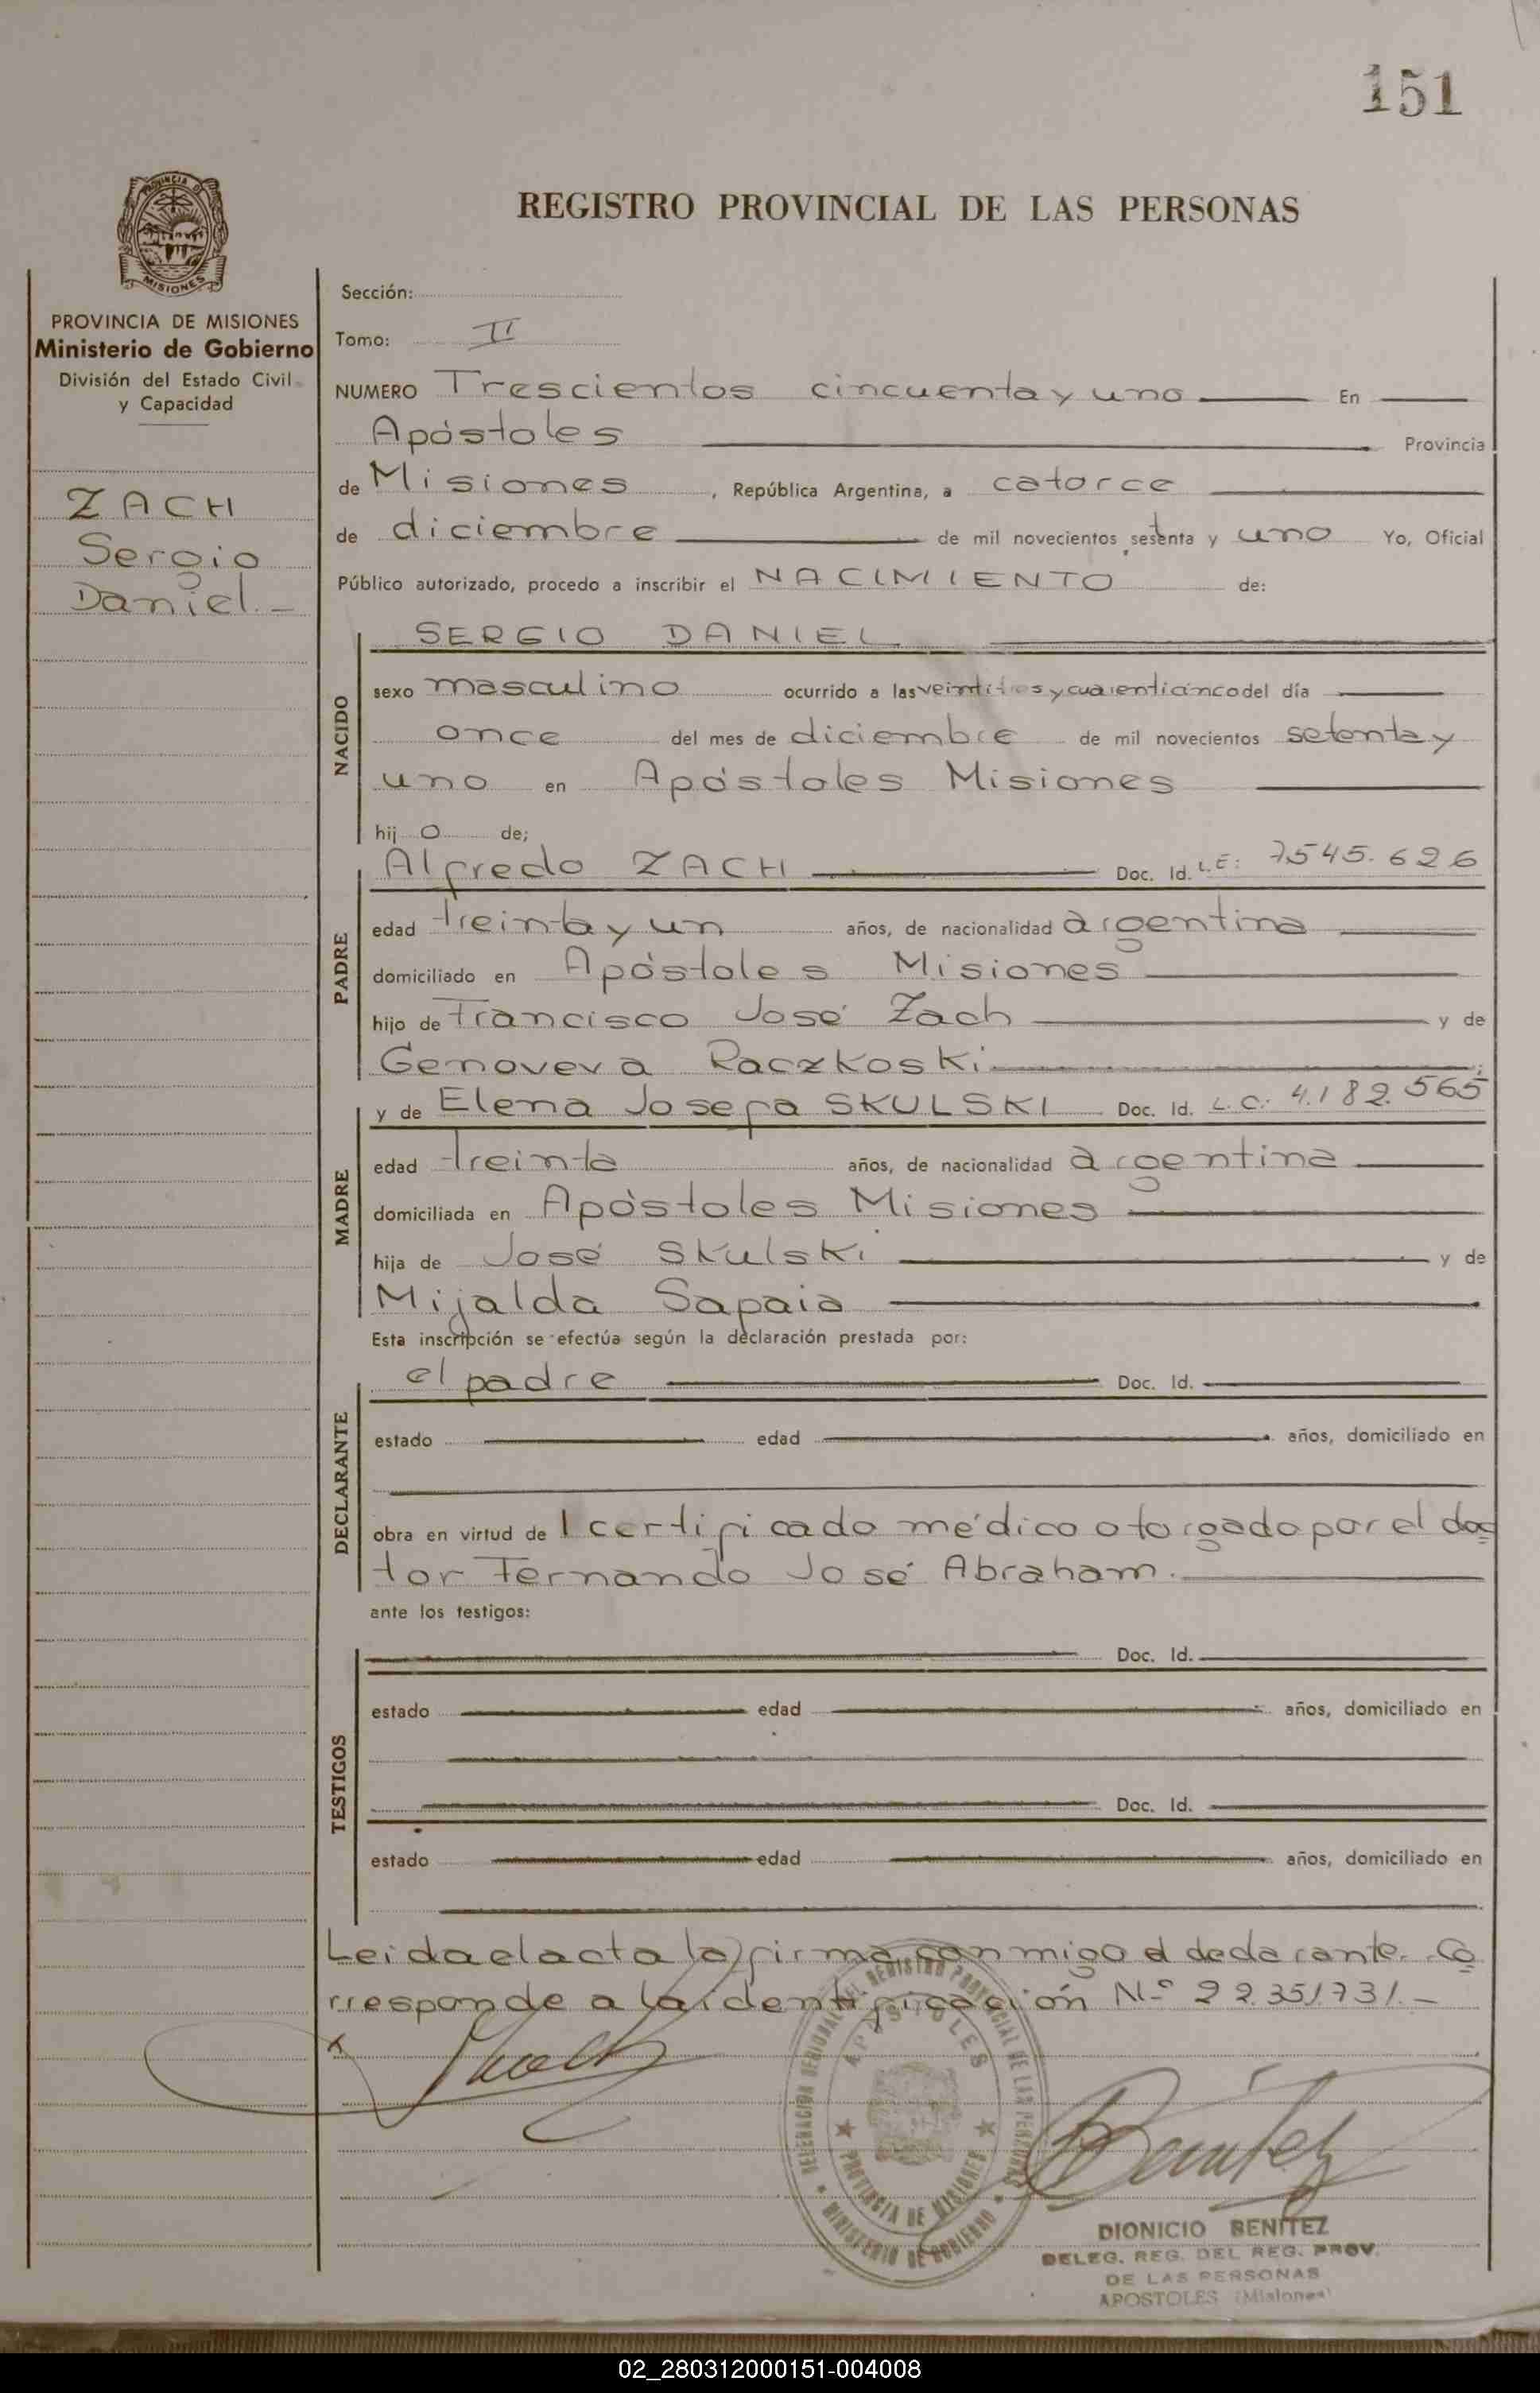 151
PROVINCIA DE
MISIONES
REGISTRO PROVINCIAL DE LAS PERSONAS
PROVINCIA DE MISIONES
Ministerio de Gobierno
División del Estado Civil
y Capacidad
ZACH
Sergio
Daniel.-
Sección:
Tomo: II
NUMERO Trescientos cincuenta y uno En
Apóstoles Provincia
de Misiones, República Argentina, a catorce
de diciembre de mil novecientos setenta y uno Yo, Oficial
Público autorizado, procedo a inscribir el NACIMIENTO de:
NACIDO
SERGIO DANIEL
sexo masculino ocurrido a las veintitres y cuarenticinco del día
once del mes de diciembre de mil novecientos setenta y
uno en Apóstoles Misiones
hijo de;
PADRE
Alfredo ZACH Doc. Id. L.E: 7545.626
edad treinta y un años, de nacionalidad argentina
domiciliado en Apóstoles Misiones
hijo de Francisco José Zach y de
Genoveva Raczkoski
MADRE
y de Elena Josefa SKULSKI Doc. Id. L.C: 4.182.565
edad treinta años, de nacionalidad argentina
domiciliada en Apóstoles Misiones
hija de José Skulski y de
Mijalda Sapaia
Esta inscripción se efectúa según la declaración prestada por:
DECLARANTE
el padre Doc. Id.
estado edad años, domiciliado en
obra en virtud de l certificado médico otorgado por el doc=
tor Fernando José Abraham.
ante los testigos:
TESTIGOS
Doc. Id.
estado edad años, domiciliado en
Doc. Id.
estado edad años, domiciliado en
Leida el acta la firma conmigo el declarante. Co=
rresponde a la identificación Nº 22.351731.-
DELEGACIÓN REGIONAL DEL REGISTRO PROVINCIAL DE LAS PERSONAS
APOSTOLES
PROVINCIA DE MISIONES
MINISTERIO DE GOBIERNO
Benitez
DIONICIO BENITEZ
DELEG. REG. DEL REG. PROV.
DE LAS PERSONAS
APOSTOLES (Misiones)
02_280312000151-004008